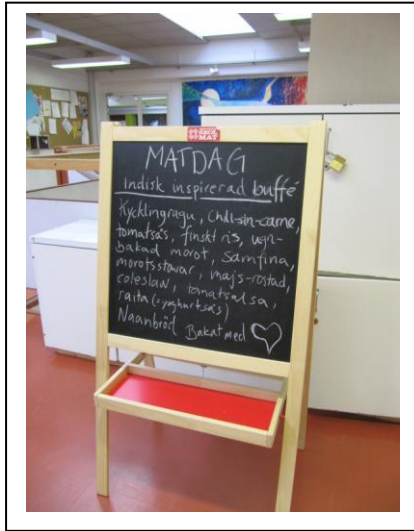 SKOL
MAT
MATDAG
Indisk inspirerad buffé
Kycklingragu, chili-sin-carne,
tomatsås, finskt ris, ugn-
bakad morot, Samfina,
morotsstavar, majs-rostad,
coleslaw, tomatsalsa,
raita (=yoghurtsås)
Naanbröd Bakat med